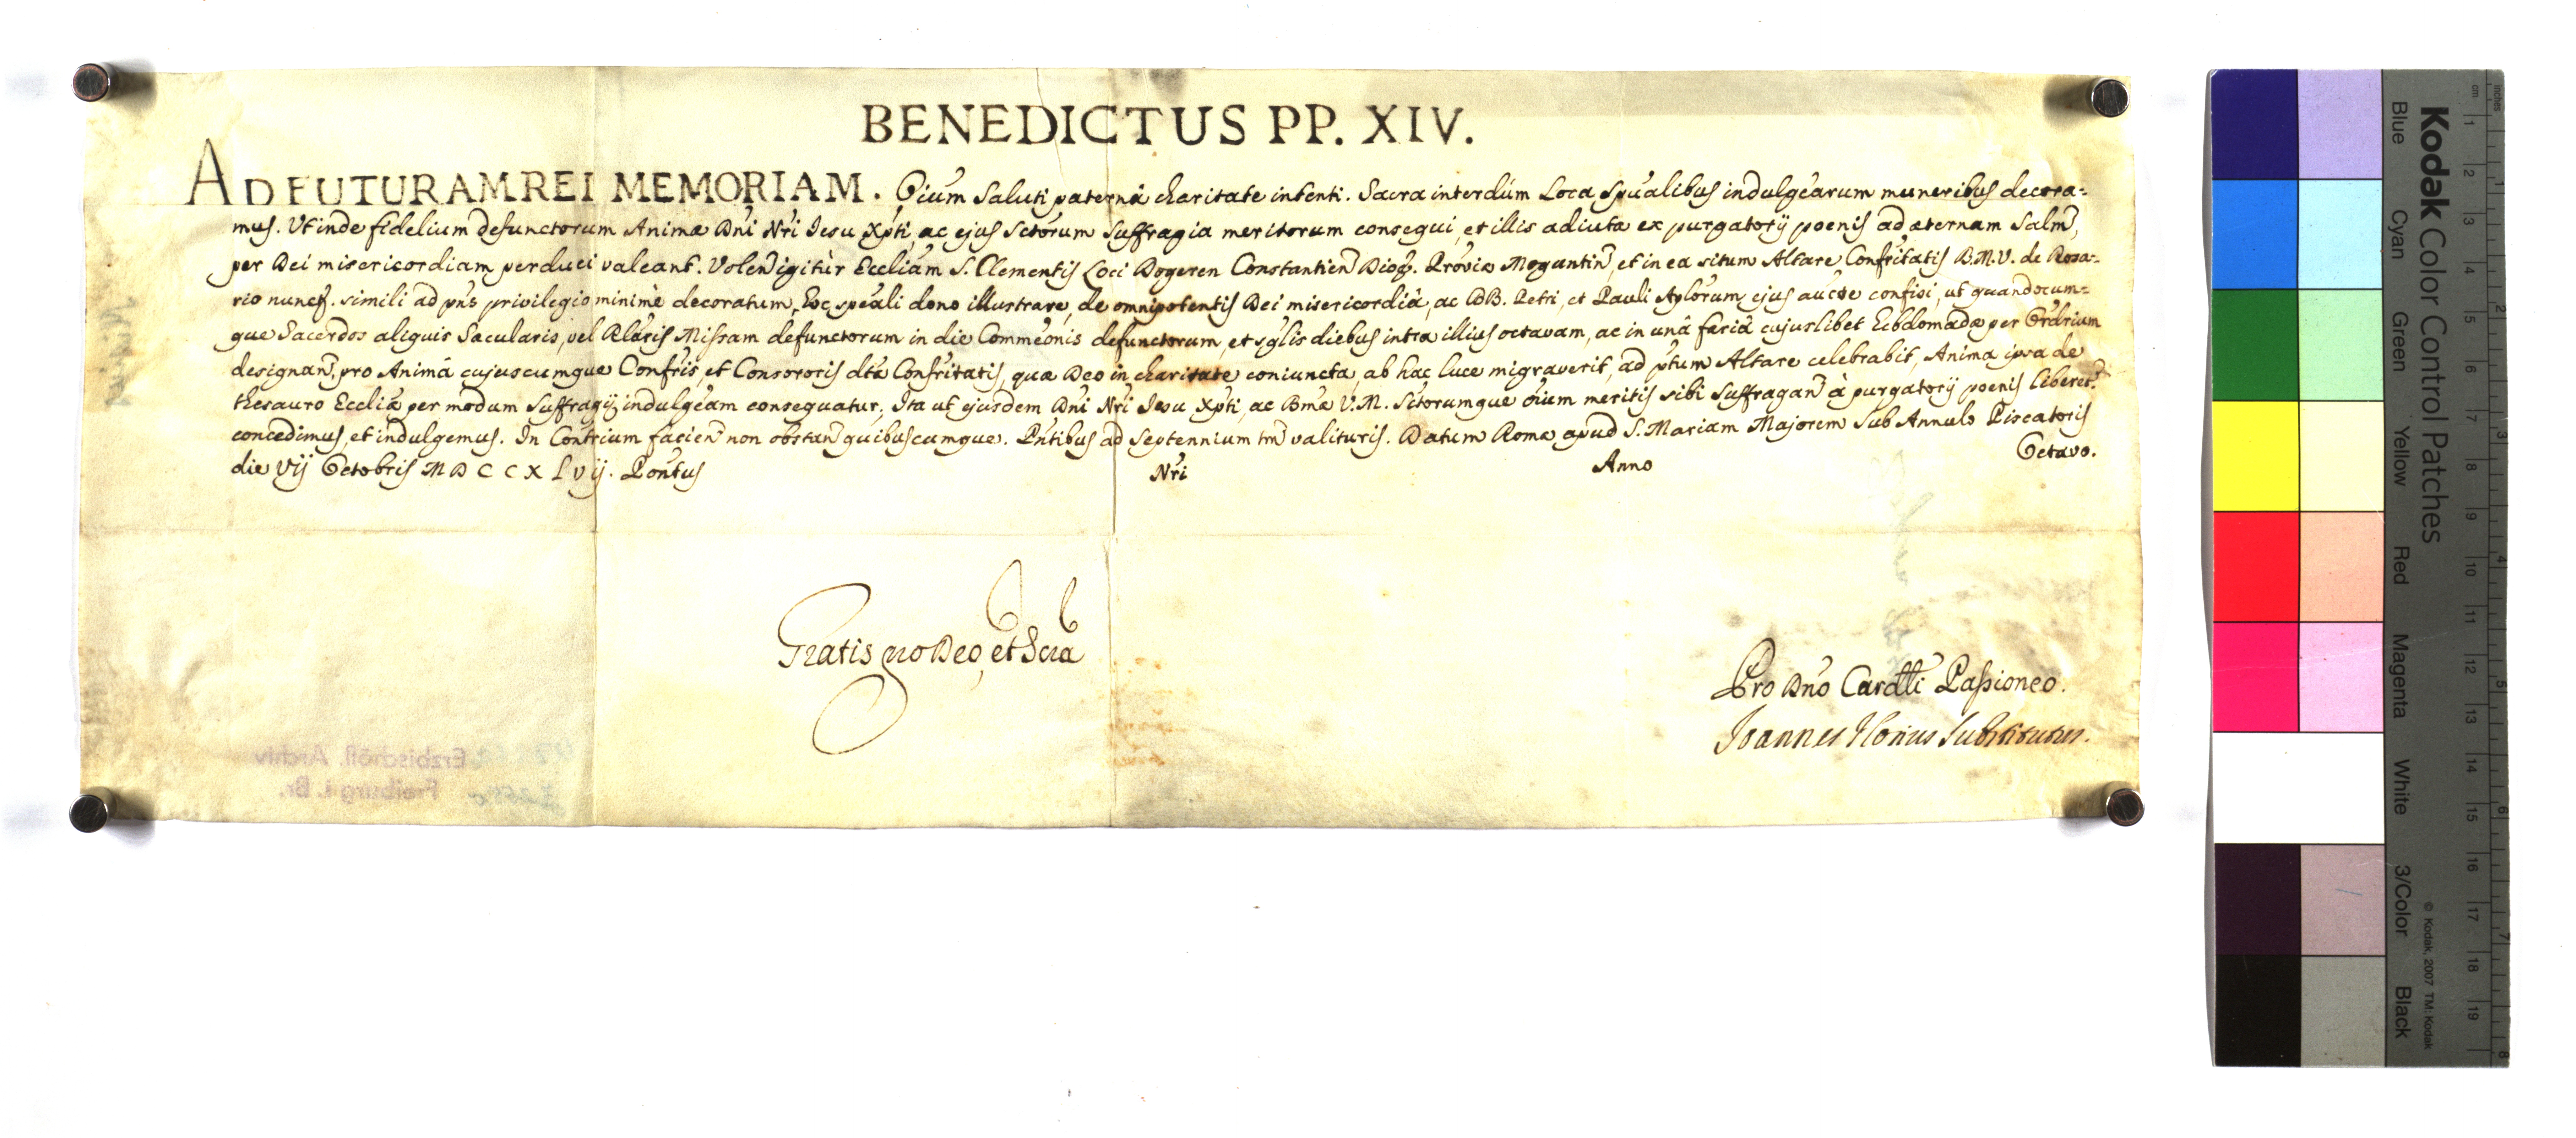 BENEDICTUS PP. XIV.
AD FUTURAM REI MEMORIAM. Oium Saluti paternâ charitate intenti. Sacra interdùm Loca Spualibus indulgearum muneribus decora-
mus. Ut inde fidelium defunctorum Animæ Dni Nri Jesu Xpti, ac ejus Sctorum Suffragia meritorum consequi, et illis adiutæ ex purgatorij poenis ad æternam Salm̃,
per Dei misericordiam perduci valeant. Volen̄ igitùr Eccliam S. Clementis Loci Dogeren Constantien̄ Dioc̄. Proviæ Moguntin̄, et in ea situm Altare Confritatis B.M.V. de Rosa-
rio nuncp̄. simili ad pñs privilegio minimè decoratum, Hoc speali dono illustrare, de omnipotentis Dei misericordiâ, ac BB. Petri, et Pauli Aplorum, ejus aucte confisi, ut quandocum-
que Sacerdos aliquis Sæcularis, vel Rlaris Missam defunctorum in die Commeonis defunctorum, et sglis diebus intra illius octavam, ac in unâ feriâ cujuslibet Hebdomadæ per Ordrium
designan̄, pro Animâ cujuscumque Confris, et Consororis dtæ Confritatis, quæ Deo in charitate coniuncta, ab hac luce migraverit, ad ptum Altare celebrabit, Anima ipsa de
thesauro Eccliæ per modum Suffragij indulgeam consequatur, Ita ut ejusdem Dni Nri Jesu Xpti, ac Bmæ V.M. Sctorumque oium meritis sibi Suffragan̄ à purgatorij poenis liberet̄.
concedimus, et indulgemus. In Contrium facien̄ non obstan̄ quibuscumque. Pntibus ad Septennium tm̃ valituris. Datum Romæ apud S. Mariam Majorem Sub Annulo Piscatoris
die Vij Octobris MDCCXLvij. Pontus Nri Anno Octavo.
Gratis pro Deo, et Scra
Pro Dno Cardli Passioneo.
Joannes Florius Substitutus.
Erzbischöfl. Archiv
Freiburg i. Br.
Kodak Color Control Patches
Blue Cyan Green Yellow Red Magenta White 3/Color Black
© Kodak, 2007 TM: Kodak
cm 1 2 3 4 5 6 7 8 9 10 11 12 13 14 15 16 17 18 19
inches 1 2 3 4 5 6 7 8